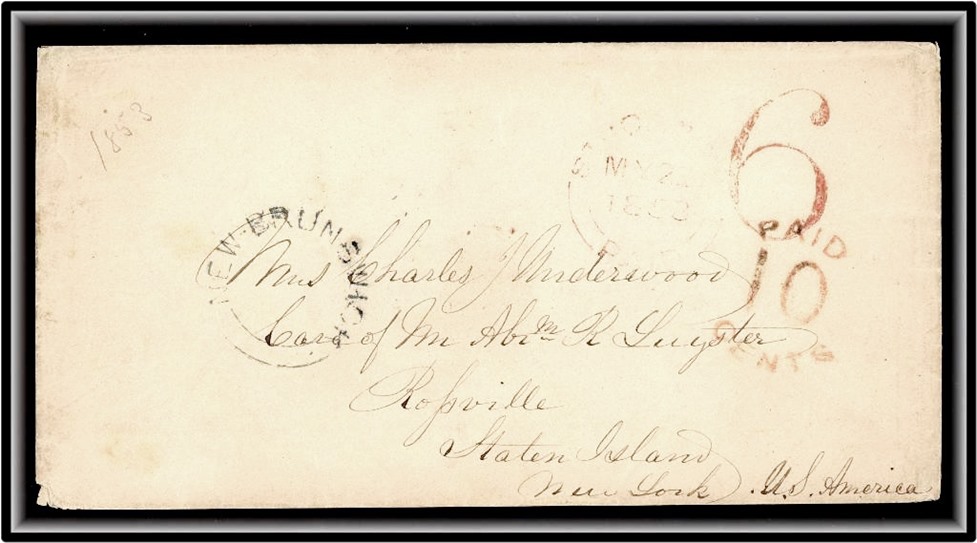 1853
6
MY 2
1853
PAID
10
CENTS
NEW-BRUNSWICK
Mrs Charles J Underwood
Care of Mr Abrm R Luyster
Rossville
Staten Island
New York U.S. America